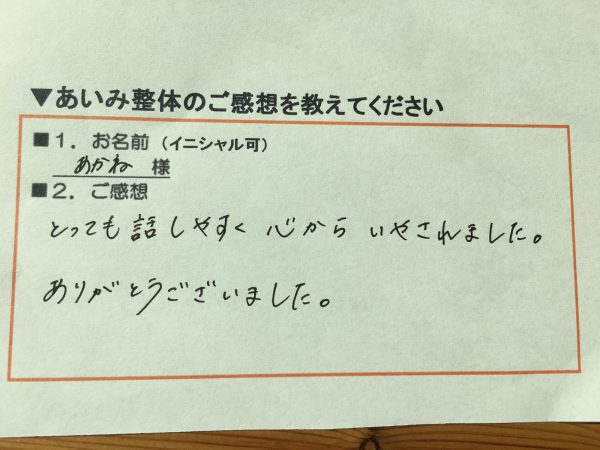 ▼あいみ整体のご感想を教えてください
■1．お名前（イニシャル可）
あかね 様
■2．ご感想
とっても話しやすく 心から いやされました。
ありがとうございました。